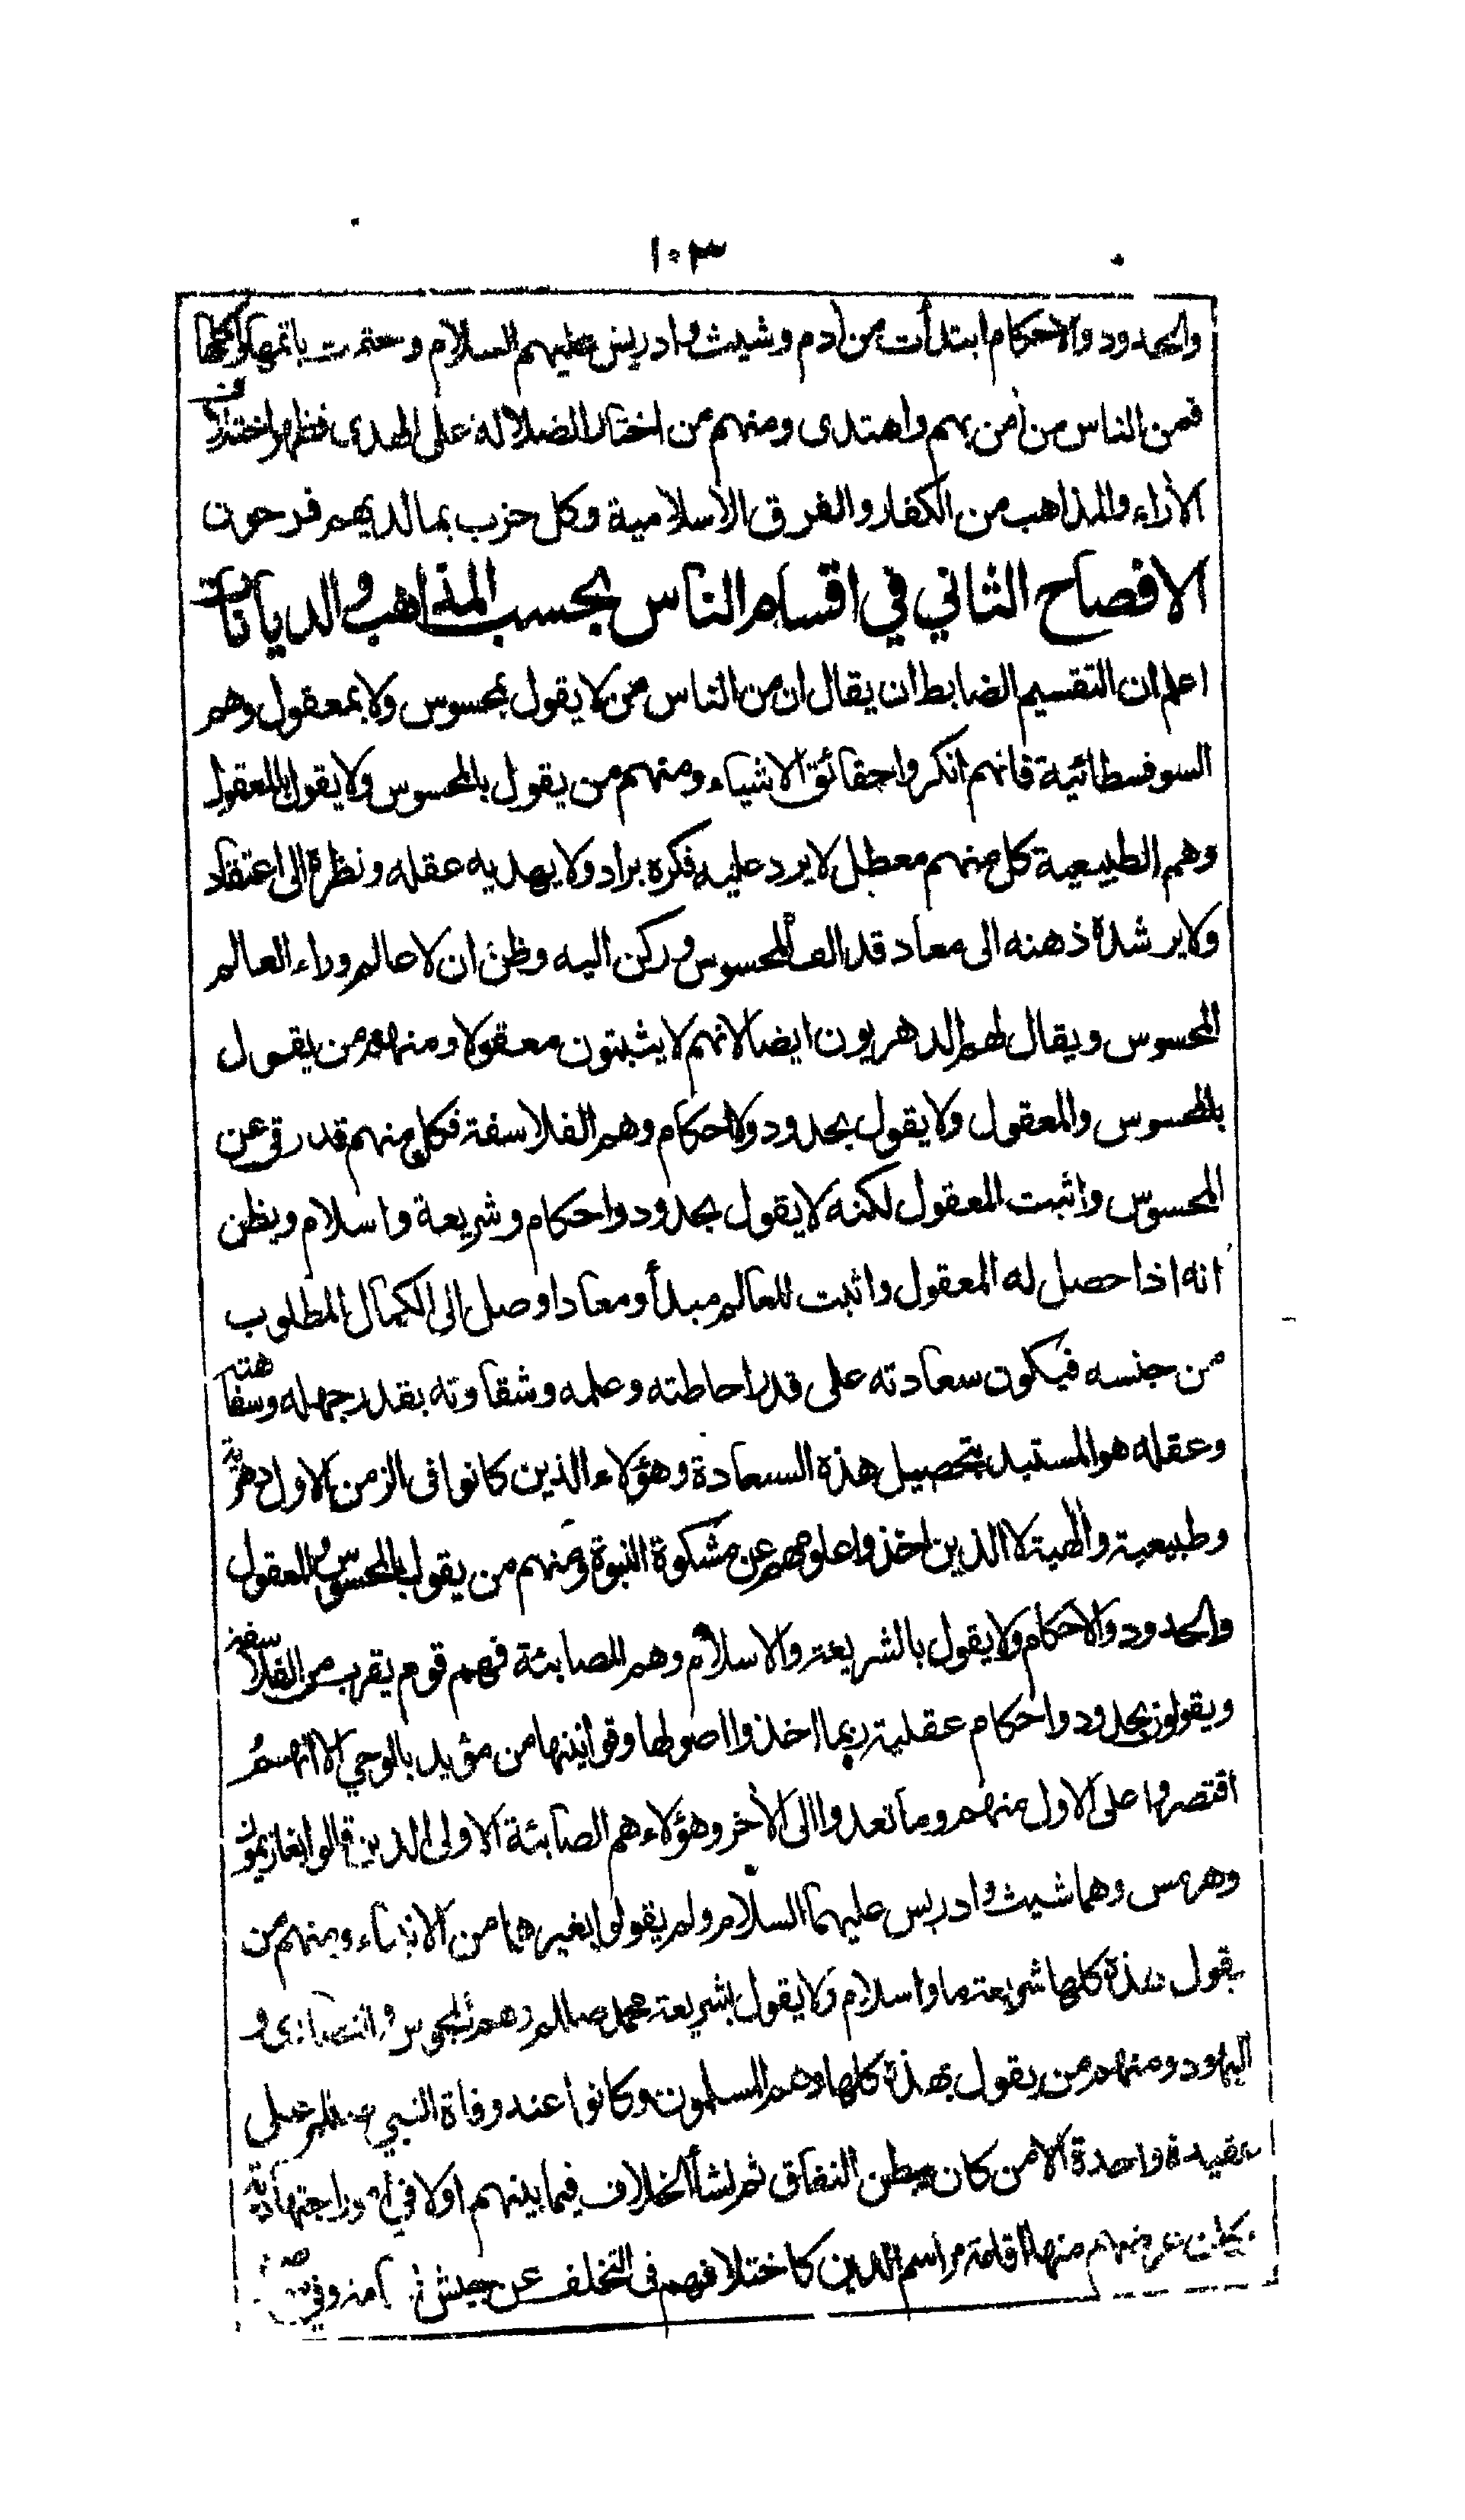 ١٠٣
والحدود والاحكام ابتدأت من أدم وشيث وادريس عليهم السلام وختمت باتمها واكملها
فمن الناس من أمن بهم واهتدى ومنهم من اختار الضلالة على الهدى فظهر اختلاف
الأراء والمذاهب من الكفار والفرق الاسلامية وكل حزب بما لديهم فرحون
الافصاح الثاني في اقسام الناس بحسب المذاهب والديانات
اعلم ان التقسيم الضابط ان يقال ان من الناس من لا يقول بمحسوس ولا بمعقول وهم
السوفسطائية فانهم انكروا حقائق الاشياء ومنهم من يقول بالمحسوس ولا يقول بالمعقول
وهم الطبيعية كل منهم معطل لا يرد عليه فكره براد ولا يهديه عقله ونظره الى اعتقاد
ولا يرشده ذهنه الى معاد قد الف المحسوس وركن اليه وظن ان لا عالم وراء العالم
المحسوس ويقال لهم الدهريون ايضا لانهم لا يثبتون معقولا ومنهم من يقول
بالمحسوس والمعقول ولا يقول بحدود ولا احكام وهم الفلاسفة فكل منهم قد رقى عن
المحسوس واثبت المعقول لكنه لا يقول بحدود واحكام وشريعة واسلام ويظن
انه اذا حصل له المعقول واثبت للعالم مبدأ ومعادا وصل الى الكمال المطلوب
من جنسه فيكون سعادته على قدر احاطته وعلمه وشقاوته بقدر جهله وسفاهته
وعقله هو المستبد بتحصيل هذه السعادة وهؤلاء الذين كانوا فى الزمن الاول دهرية
وطبيعية والهية لا الذين اخذوا علومهم عن مشكوة النبوة ومنهم من يقول بالمحسوس والمعقول
والحدود والاحكام ولا يقول بالشريعة والاسلام وهم الصابئة فهم قوم يقرب من الفلاسفة
ويقولون بحدود واحكام عقلية ربما اخذوا اصولها وقوانينها من مؤيد بالوحي الا انهم
اقتصروا على الاول منهم وما تعدوا الى الأخر وهؤلاء هم الصابئة الاولى الذين قالوا بغازيمون
وهرمس وهما شيث وادريس عليهما السلام ولم يقولوا بغيرهما من الانبياء ومنهم من
يقول بهذه كلها شريعة ما واسلام ولا يقول بشريعة محمد صللم وهم المجوس والنصارى و
اليهود ومنهم من يقول بهذه كلها وهم المسلمون وكانوا عند وفاة النبي صللم على
عقيدة واحدة الا من كان يبطن النفاق ثم نشأ الخلاف فيما بينهم اولا في امور اجتهادية
كان غرضهم منها اقامة مراسم الدين كاختلافهم فى التخلف عن جيش اسامة وفي